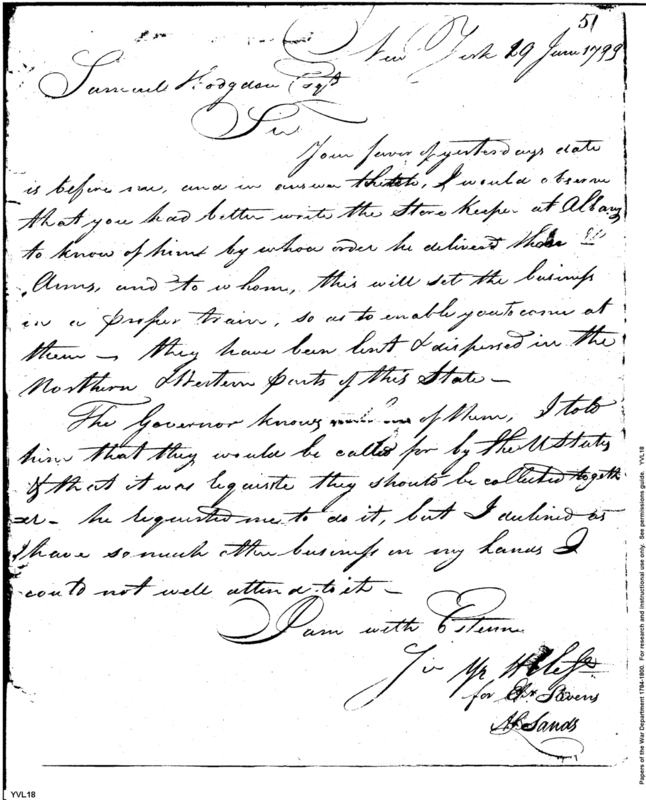 51
New York 29 June 1799
Samuel Hodgdon Esqr
Sir
Your favor of yesterdays date
is before me, and in answer I would observe
that you had better write the Store Keeper at Albany
to know of him by whose order he delivered those
Arms, and to whom, this will set the business
in a proper train, so as to enable you to come at
them — they have been lent & dispersed in the
Northern & Western Parts of this State —
The Governor knows of them, I told
him that they would be called for by the UStates
& that it was requisite they should be collected togeth
er — he requested me to do it, but I declined as
I have so much other business on my hands I
could not well attend to it —
I am with Esteem
Sir Yr
for Ebr Stevens
Sands
YVL18
Papers of the War Department 1784-1800. For research and instructional use only. See permissions guide. YVL18